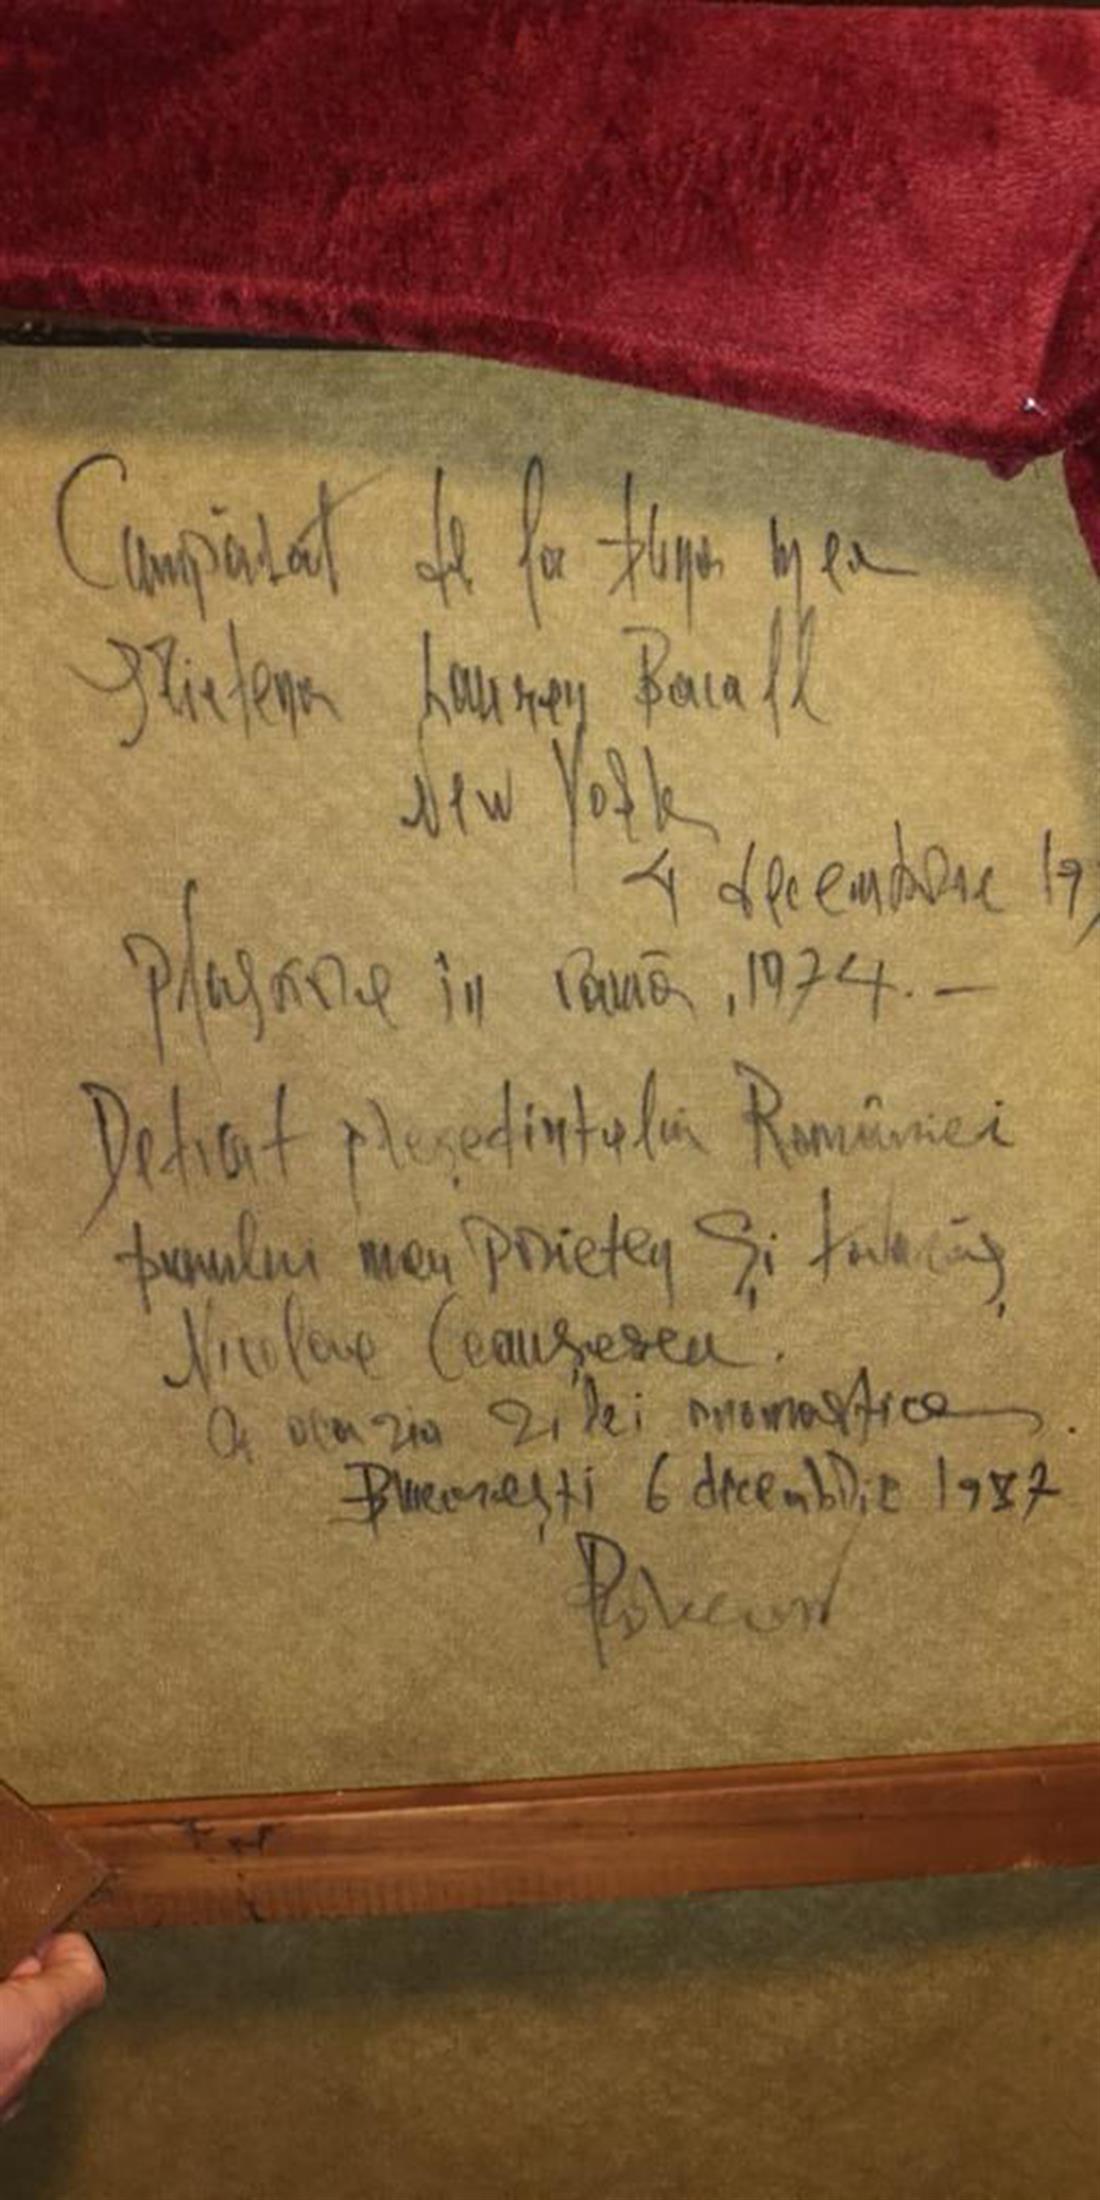 Cumpărat de la buna mea
prietena Lauren Bacall
New York
4 decembrie 197
în ramă, 1974. —
Dedicat președintelui României
bunului meu prieten și
Nicolae Ceaușescu.
a ocazia zilei onomastice.
București 6 decembrie 1987